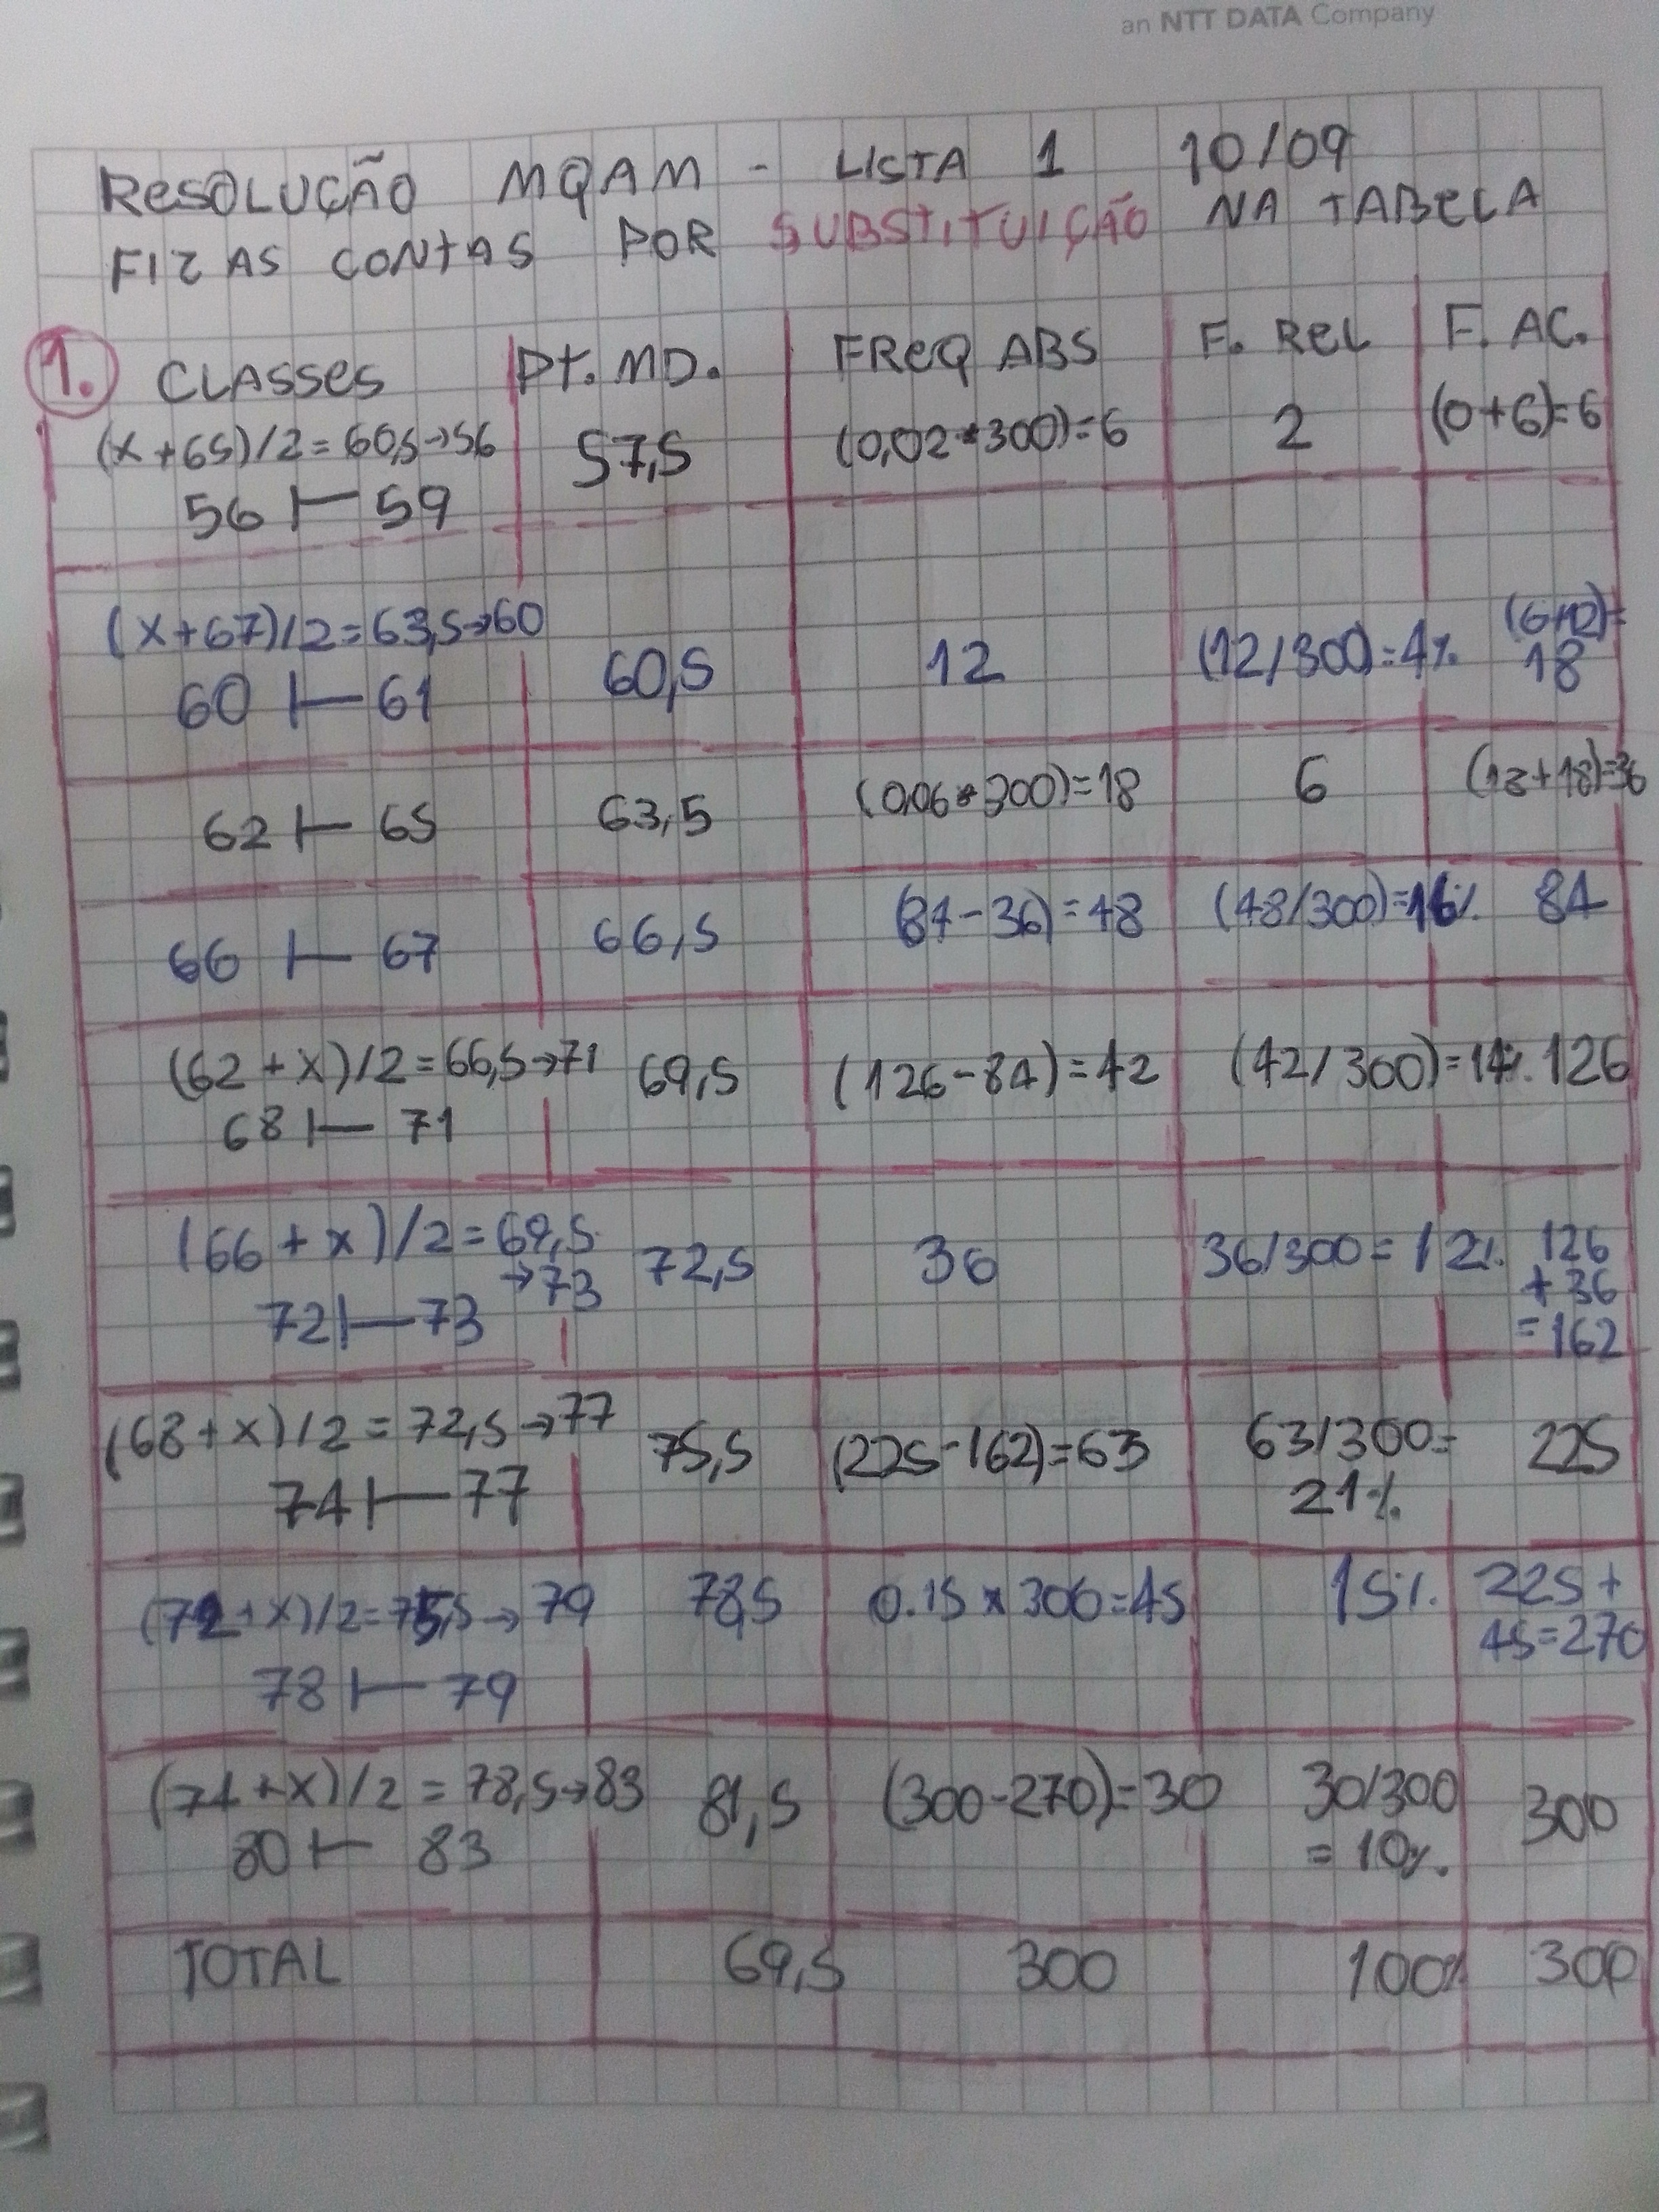 an NTT DATA Company
RESOLUÇÃO MQAM - LISTA 1 10/09
FIZ AS CONTAS POR SUBSTITUIÇÃO NA TABELA
1. CLASSES PT. MD. FREQ ABS F. REL F. AC.
(x+65)/2=60,5→56 57,5 (0,02*300)=6 2 (0+6)=6
56 ⊢ 59
(x+67)/2=63,5→60 60,5 12 (12/300)=4% (6+12)=
60 ⊢ 61 18
62 ⊢ 65 63,5 (0,06*300)=18 6 (18+18)=36
66 ⊢ 67 66,5 (84-36)=48 (48/300)=16% 84
(62+x)/2=66,5→71 69,5 (126-84)=42 (42/300)=14% 126
68 ⊢ 71
(66+x)/2=69,5 72,5 36 36/300=12% 126
→73 +36
72 ⊢ 73 =162
(68+x)/2=72,5→77 75,5 (225-162)=63 63/300= 225
74 ⊢ 77 21%
(72+x)/2=75,5→79 78,5 0.15x300=45 15% 225+
78 ⊢ 79 45=270
(74+x)/2=78,5→83 81,5 (300-270)=30 30/300 300
80 ⊢ 83 =10%.
TOTAL 69,5 300 100% 300